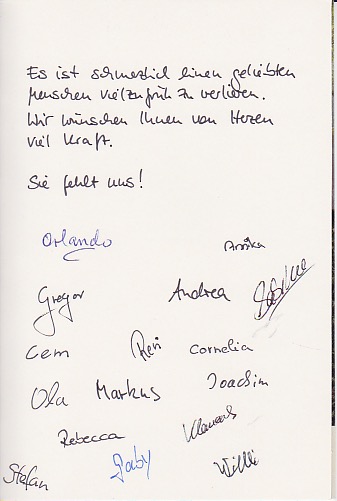 Es ist schmerzlich einen geliebten
Menschen viel zu früh zu verlieren.
Wir wünschen Ihnen von Herzen
viel Kraft.
Sie fehlt uns!
Orlando Annika
Gregor Andrea Sabine
Cem Reni Cornelia
Ola Markus Joachim
Rebecca Klemens
Stefan Gaby Willi